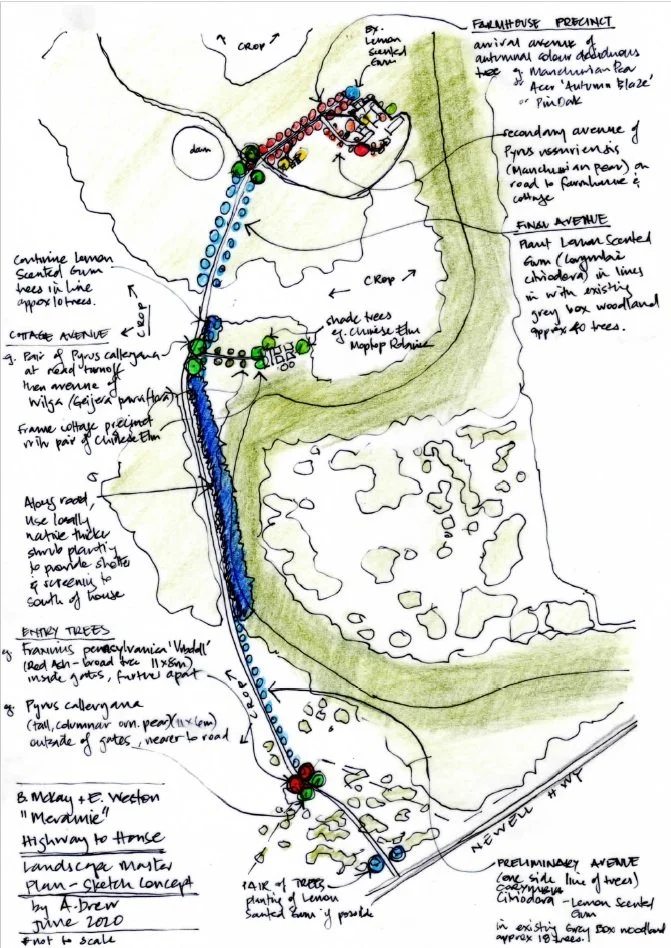 FARMHOUSE PRECINCT
arrival avenue of
autumnal colour deciduous
tree eg Manchurian Pear
or Acer 'Autumn Blaze'
or Pin Oak
Ex.
Lemon
Scented
Gum
CROP
dam
secondary avenue of
Pyrus ussuriensis
(Manchurian pear) on
road to farmhouse &
cottage
FINAL AVENUE
Plant Lemon Scented
Gum (Corymbia
citriodora) in lines
in with existing
grey box woodland
approx 40 trees.
Continue Lemon
Scented Gum
trees in line
appox 10 trees.
CROP
CROP
shade trees
eg. Chinese Elm
Moptop Robinia
COTTAGE AVENUE
eg. Pair of Pyrus calleryana
at road turnoff
then avenue of
Wilga (Geijera parviflora)
Frame cottage precinct
with pair of Chinese Elm
Along road,
use locally
native thicker
shrub planting
to provide shelter
& screening to
south of house
ENTRY TREES
eg Fraxinus pennsylvanica
(Red Ash - broad tree 11x8m)
inside gates, further apart
eg. Pyrus calleryana
(tall, columnar orn. pear)(11x6m)
outside of gates, nearer to road
CROP
B. McKay + E. Weston
"Meramie"
Highway to House
Landscape Master
Plan - Sketch Concept
by A. Drew
June 2020
* not to scale
NEWELL HWY
PAIR of TREES
planting of Lemon
Scented Gum if possible
PRELIMINARY AVENUE
(one side line of trees)
Corymbia
Citriodora - Lemon Scented
Gum
in existing Grey Box woodland
approx 18 trees.